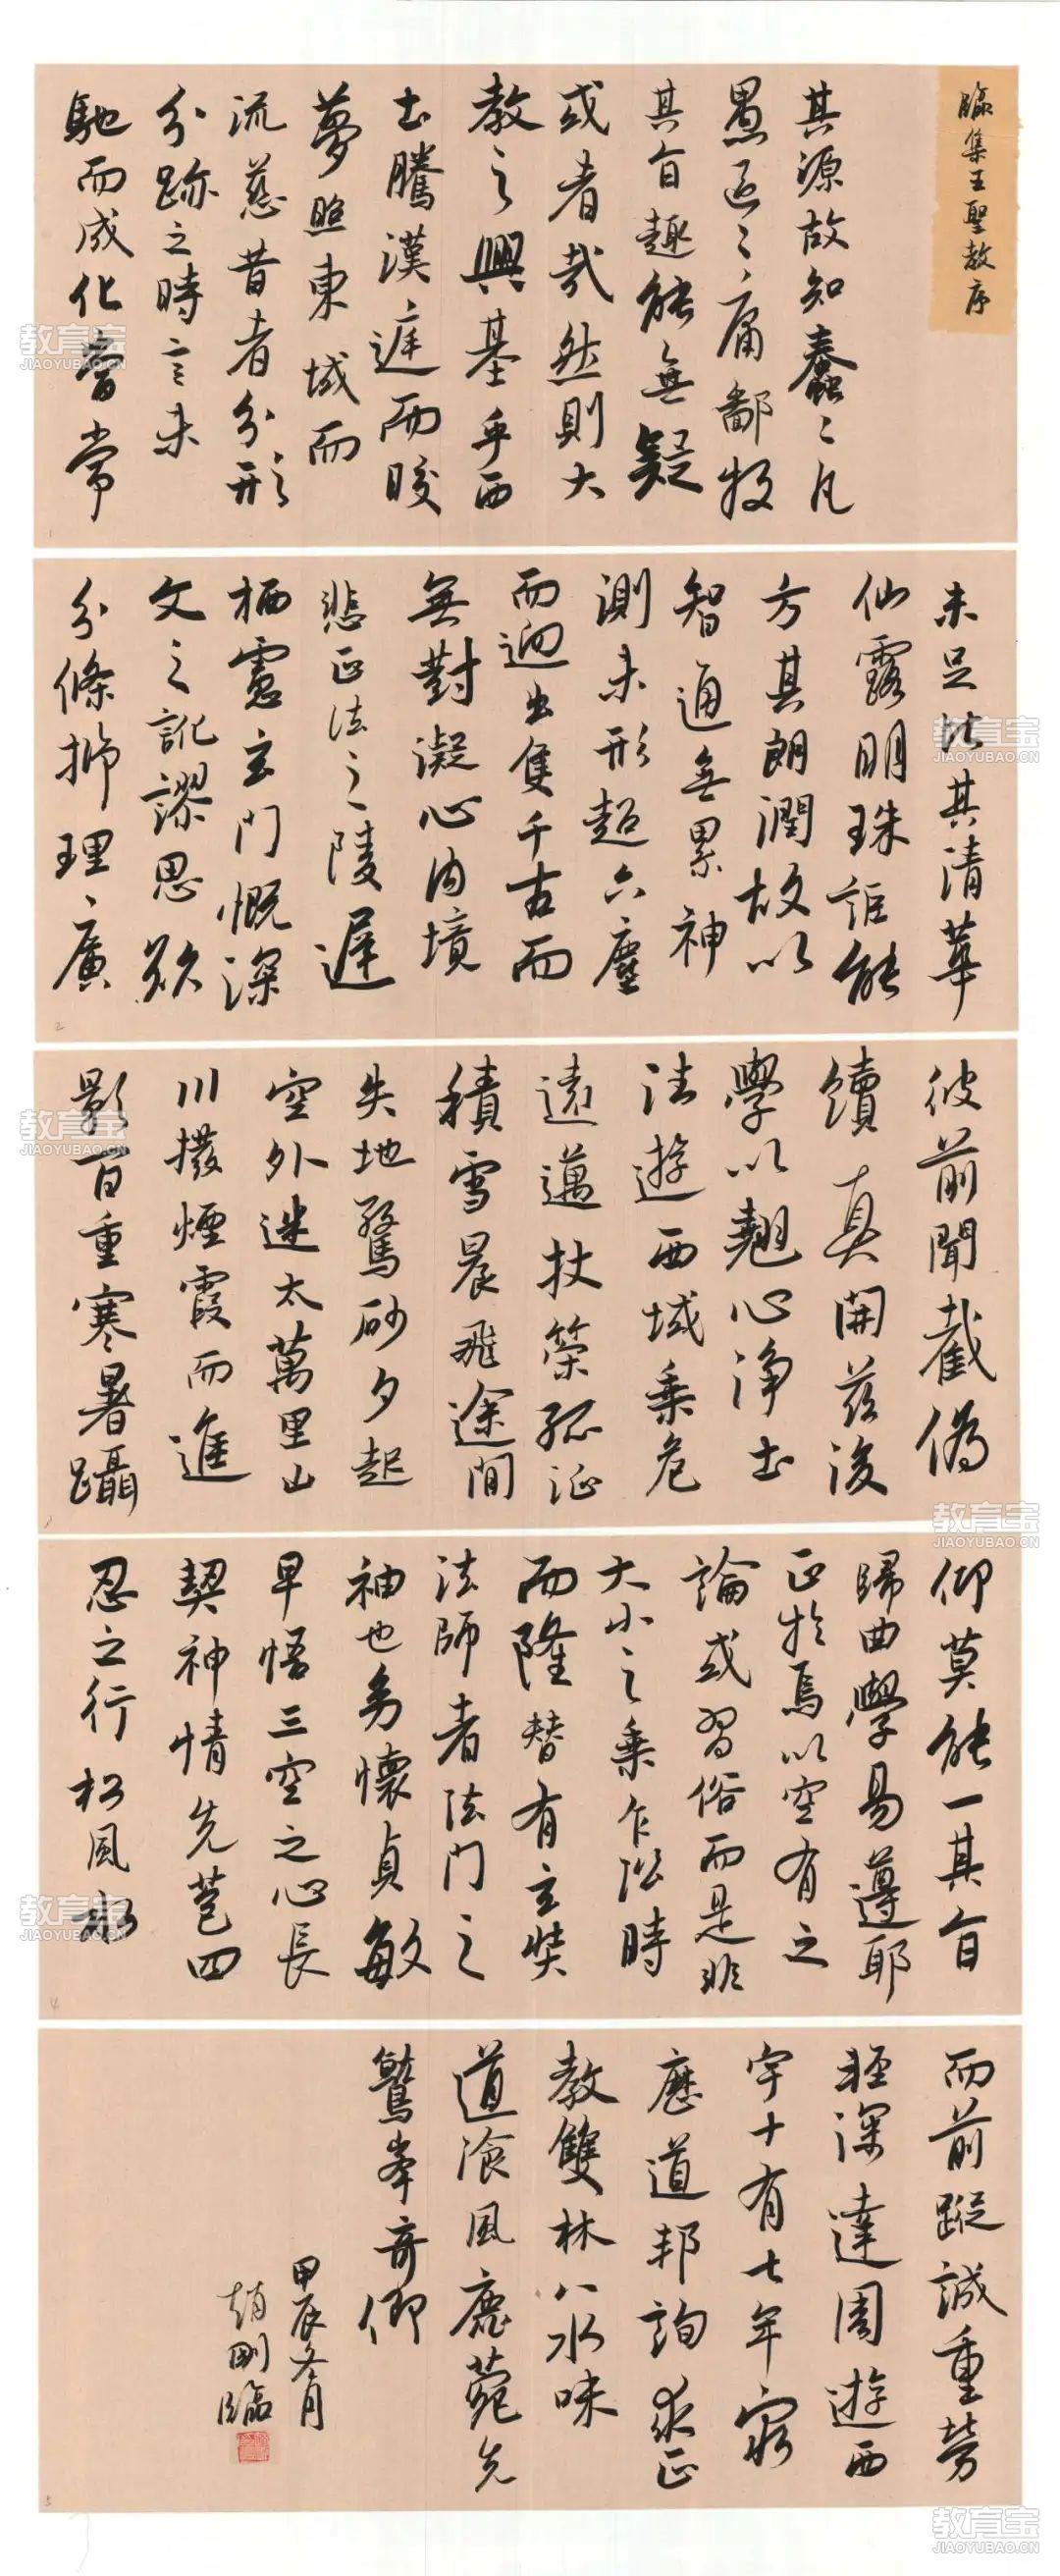 臨集王聖教序
其源故知蠢〻凡
愚區〻庸鄙投
其旨趣能無疑
或者哉然則大
教之興基乎西
土騰漢庭而皎
夢照東域而
流慈昔者分形
分跡之時言未
馳而成化當常
未足比其清華
仙露明珠詎能
方其朗潤故以
智通無累神
測未形超六塵
而迥出隻千古而
無對凝心內境
悲正法之陵遲
栖慮玄門慨深
文之訛謬思欲
分條析理廣
彼前聞截偽
續真開茲後
學以翹心淨土
法遊西域乘危
遠邁杖策孤征
積雪晨飛途間
失地驚砂夕起
空外迷天萬里山
川撥煙霞而進
影百重寒暑躡
仰莫能一其旨
歸曲學易遵耶
正於焉以空有之
論或習俗而是非
大小之乘乍沿時
而隆替有玄奘
法師者法門之
袖也幼懷貞敏
早悟三空之心長
契神情先苞四
忍之行松風水
而前蹤誠重勞
輕深達周遊西
宇十有七年窮
歷道邦詢求正
教雙林八水味
道飡風鹿菀先
鷲峯奇仰
甲辰冬月
趙剛臨
教育宝
JIAOYUBAO.CN